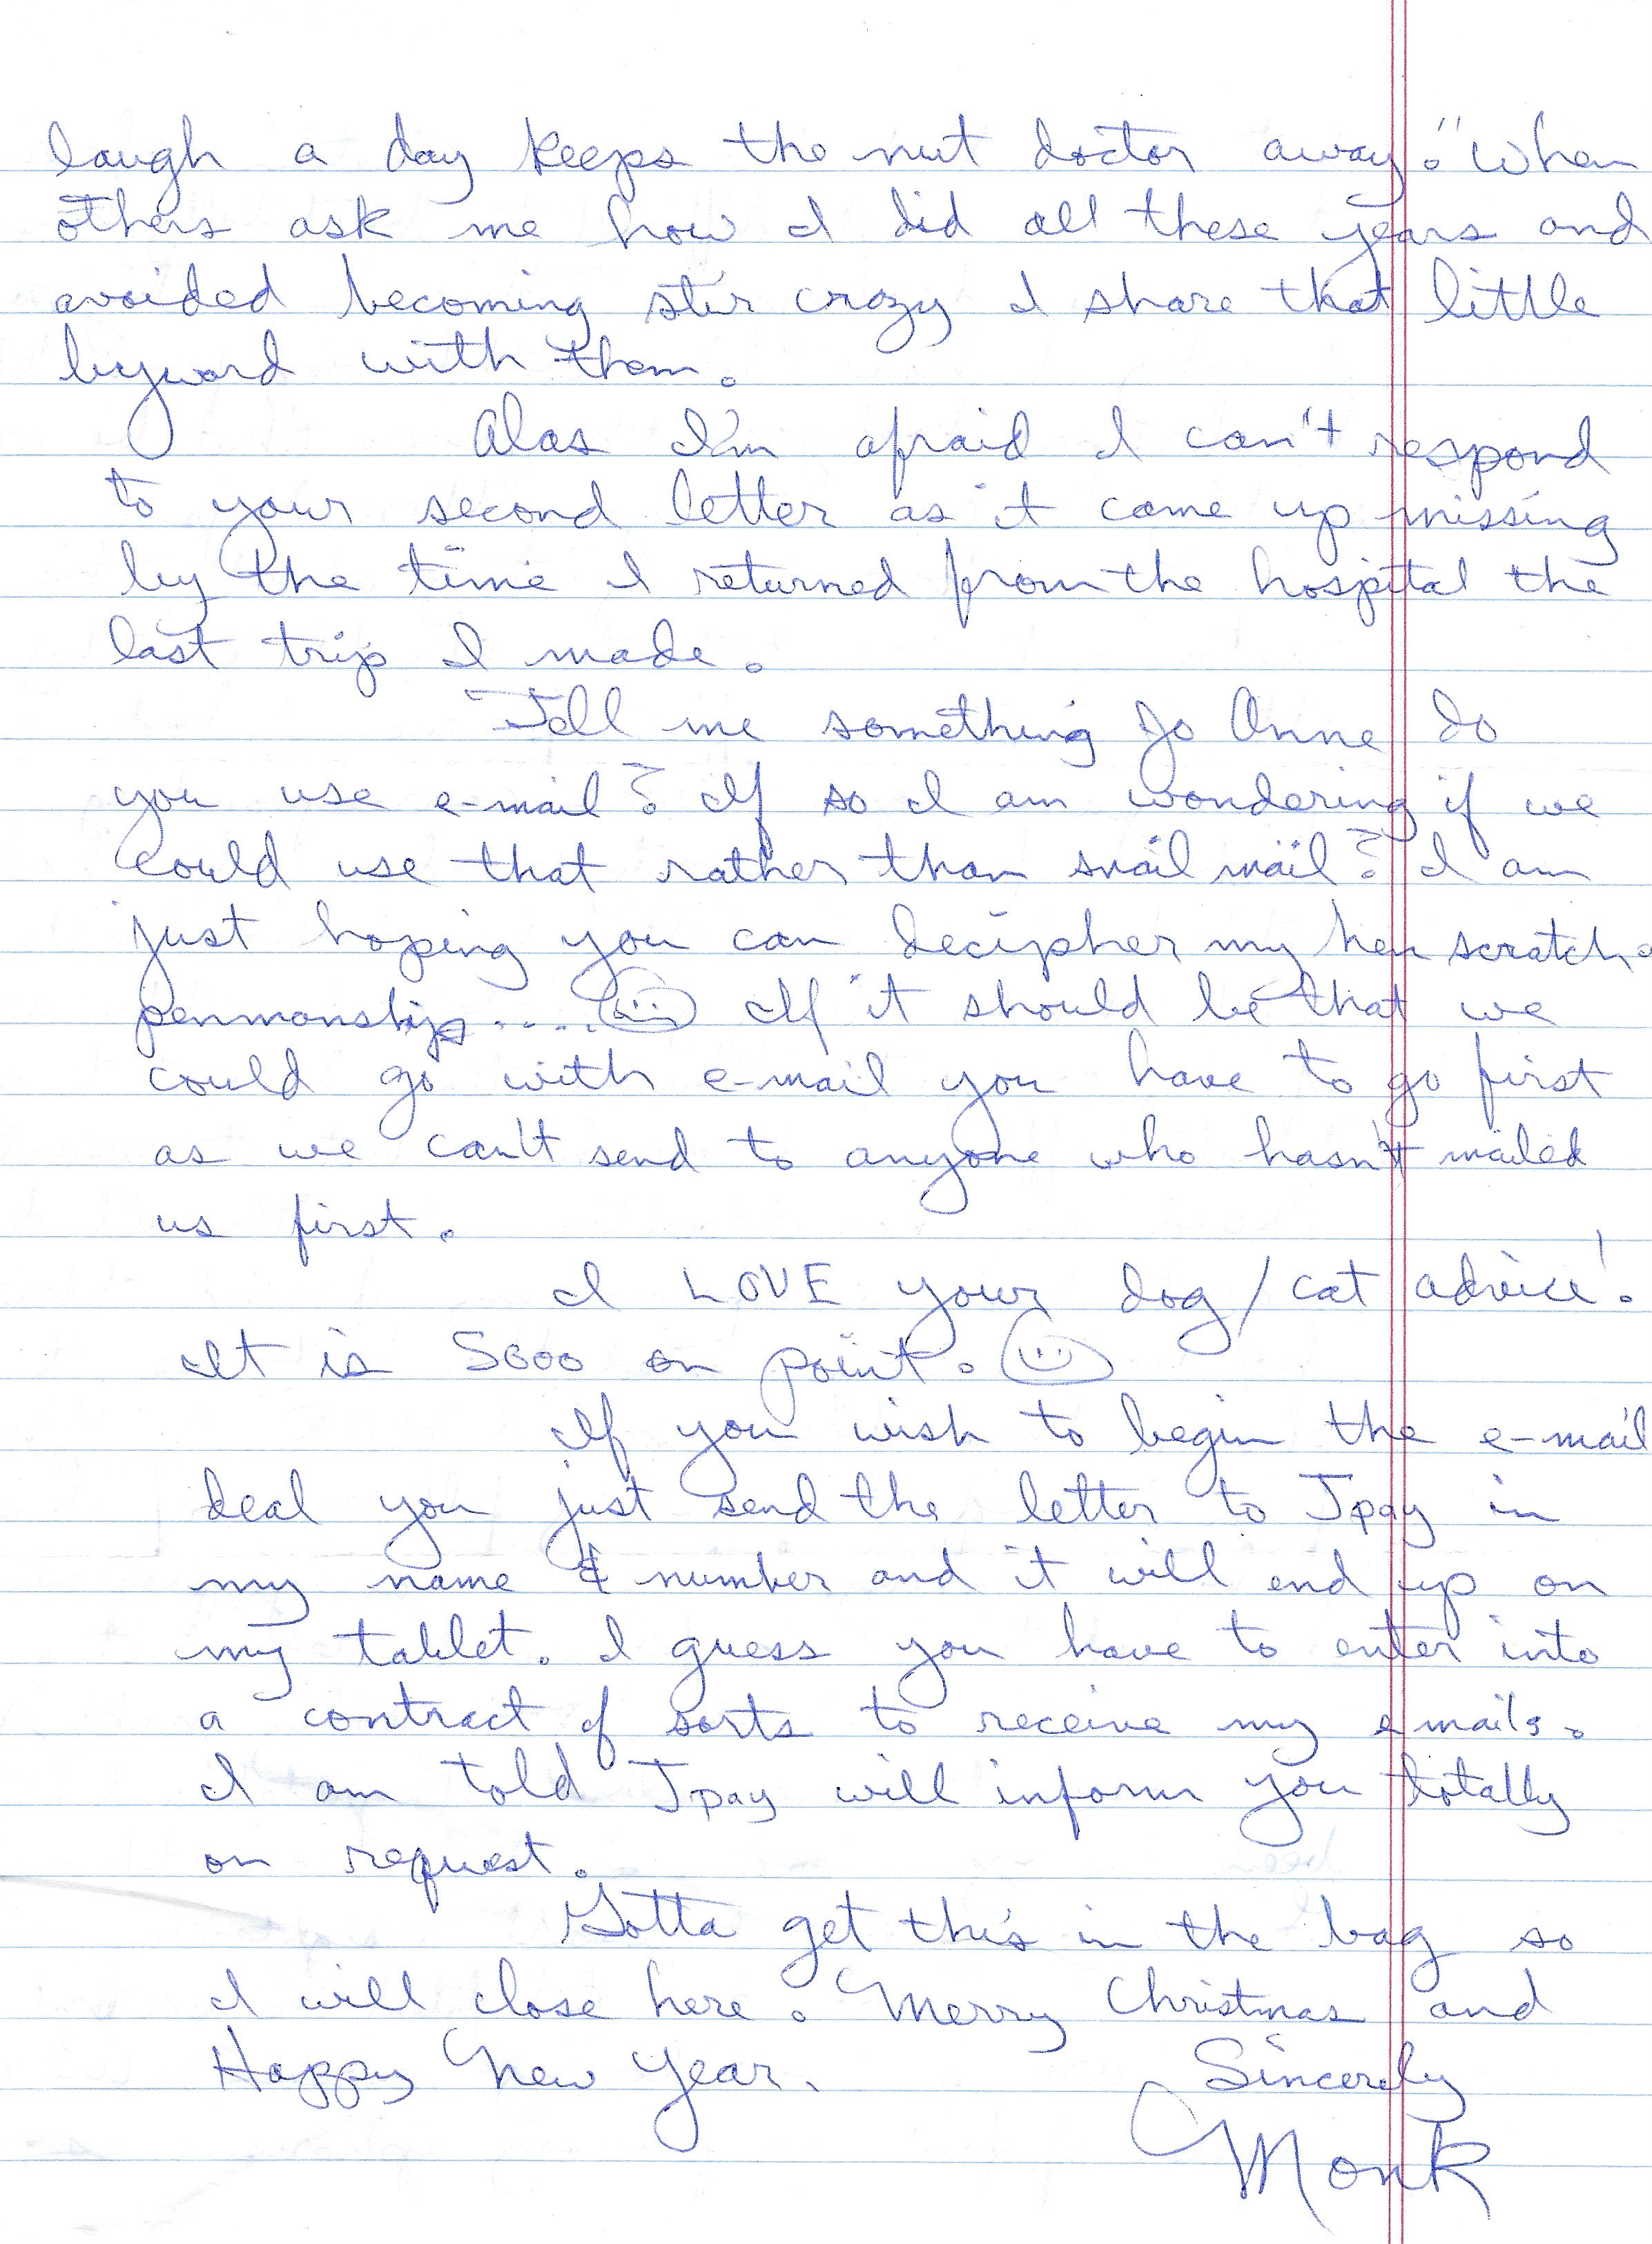 laugh a day keeps the nut doctor away." When
others ask me how I did all these years and
avoided becoming stir crazy I share that little
byword with them.
Alas I'm afraid I can't respond
to your second letter as it came up missing
by the time I returned from the hospital the
last trip I made.
Tell me something Jo Anne do
you use e-mail? If so I am wondering if we
could use that rather than snail mail? I am
just hoping you can decipher my hen scratch
penmanship..... If it should be that we
could go with e-mail you have to go first
as we can't send to anyone who hasn't mailed
us first.
I LOVE your dog/cat advice!
It is Sooo on point.
If you wish to begin the e-mail
deal you just send the letter to Jpay in
my name & number and it will end up on
my tablet. I guess you have to enter into
a contract of sorts to receive my emails.
I am told Jpay will inform you totally
on request.
Gotta get this in the bag so
I will close here. Merry Christmas and
Happy New Year. Sincerely
Monk